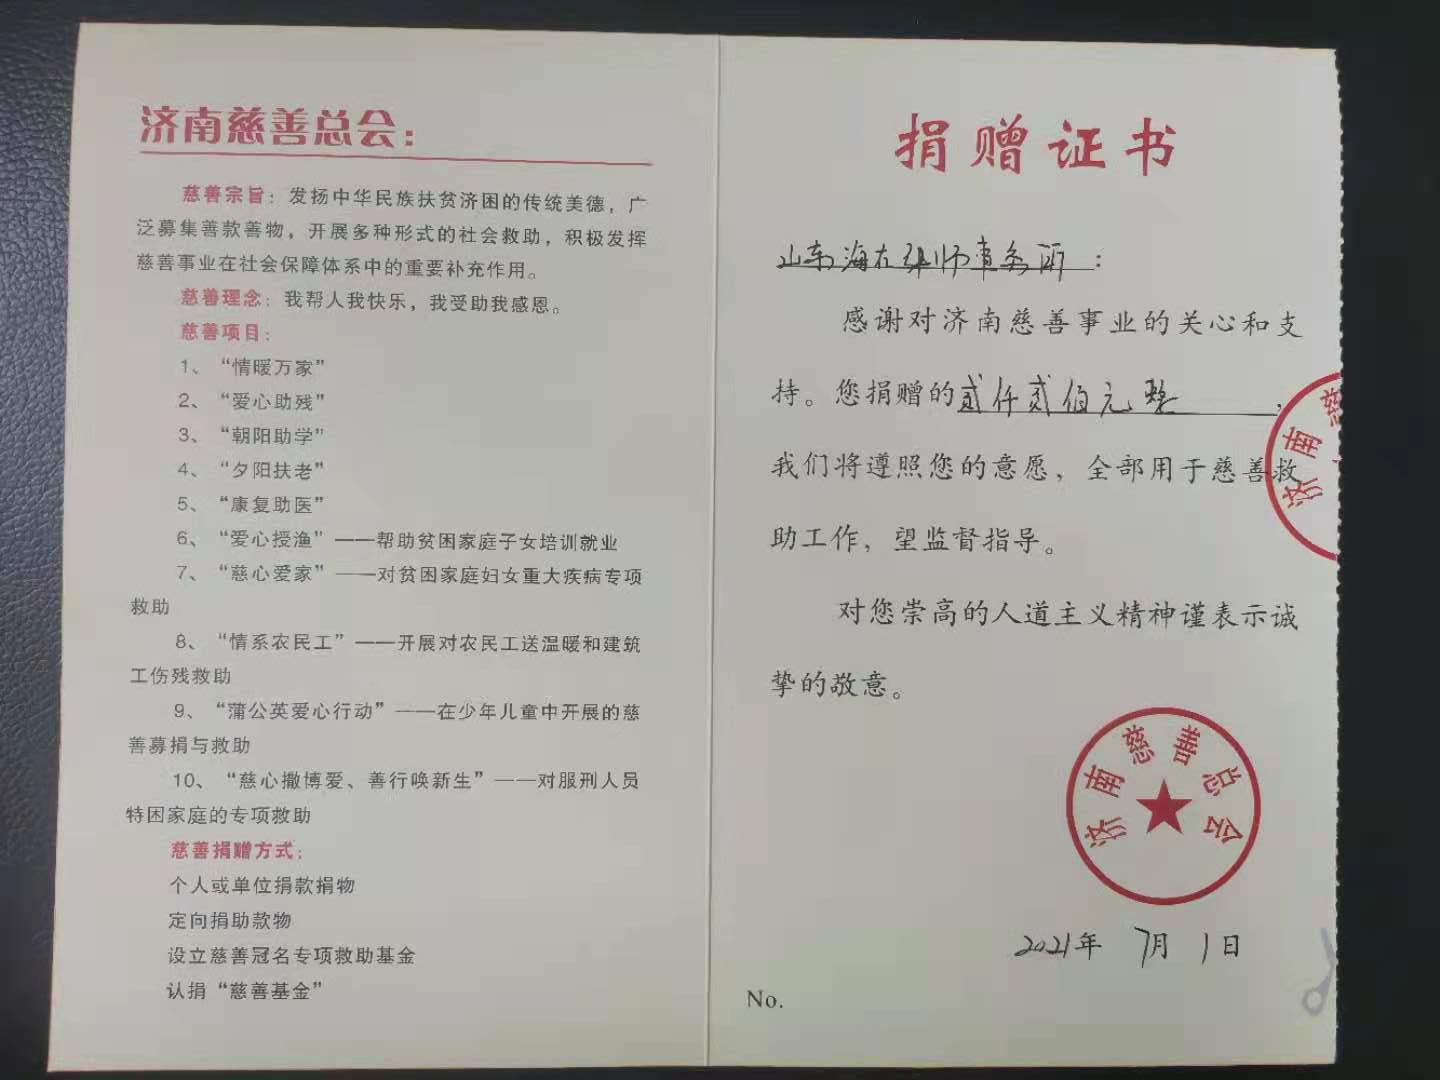 济南慈善总会：
慈善宗旨：发扬中华民族扶贫济困的传统美德，广
泛募集善款善物，开展多种形式的社会救助，积极发挥
慈善事业在社会保障体系中的重要补充作用。
慈善理念：我帮人我快乐，我受助我感恩。
慈善项目：
1、“情暖万家”
2、“爱心助残”
3、“朝阳助学”
4、“夕阳扶老”
5、“康复助医”
6、“爱心授渔”——帮助贫困家庭子女培训就业
7、“慈心爱家”——对贫困家庭妇女重大疾病专项
救助
8、“情系农民工”——开展对农民工送温暖和建筑
工伤残救助
9、“蒲公英爱心行动”——在少年儿童中开展的慈
善募捐与救助
10、“慈心撒博爱、善行唤新生”——对服刑人员
特困家庭的专项救助
慈善捐赠方式：
个人或单位捐款捐物
定向捐助款物
设立慈善冠名专项救助基金
认捐“慈善基金”
捐赠证书
山东海右律师事务所：
感谢对济南慈善事业的关心和支
持。您捐赠的贰仟贰佰元整，
我们将遵照您的意愿，全部用于慈善救
助工作，望监督指导。
对您崇高的人道主义精神谨表示诚
挚的敬意。
济南慈
济南慈善总会
2021年 7月 1日
No.